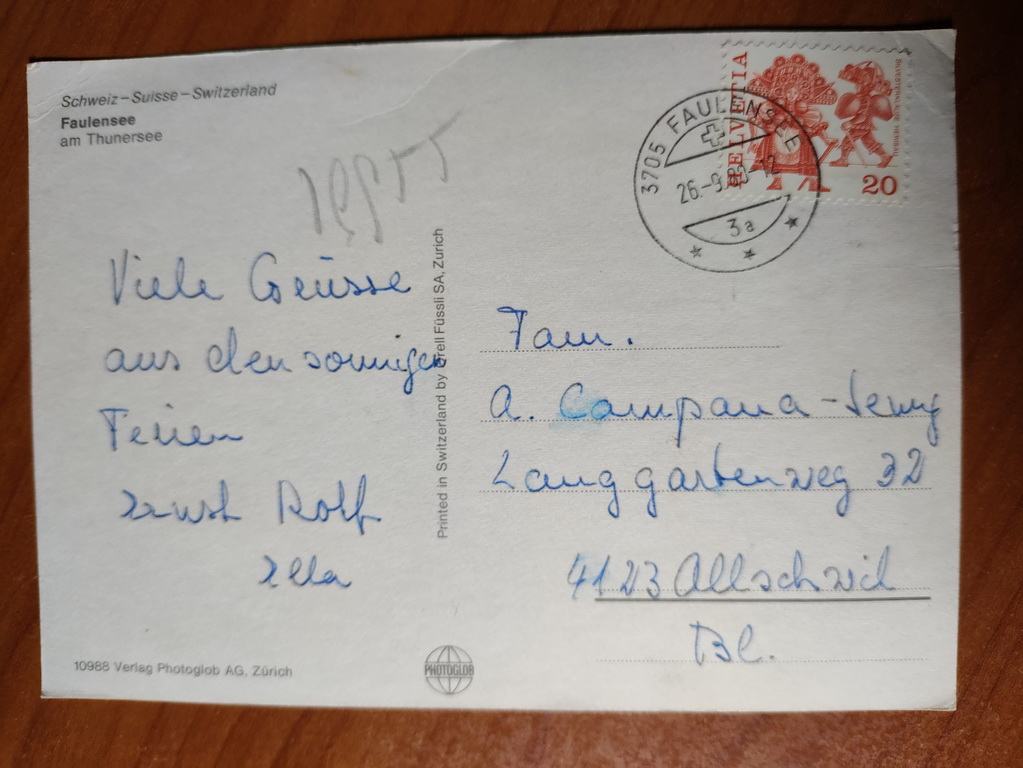 Schweiz – Suisse – Switzerland
Faulensee
am Thunersee
Viele Grüsse
aus den sonnigen
Ferien
Ernst Rolf
Ella
10988 Verlag Photoglob AG, Zürich
Printed in Switzerland by Orell Füssli SA, Zurich
PHOTOGLOB
HELVETIA
20
3705 FAULENSEE
26.-9.80-12
3a
Fam.
A. Campana-
Langgartenweg 32
4123 Allschwil
BL.